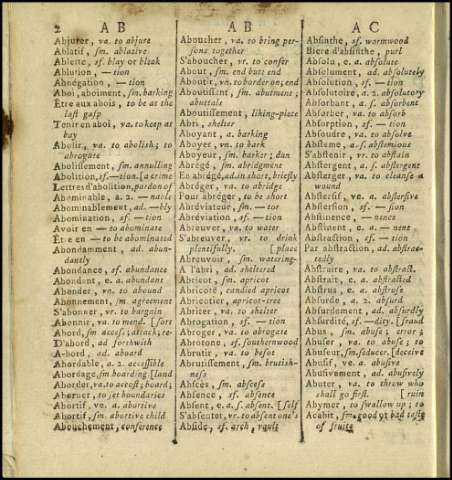 2 A B
Abjurer, va. to abjure
Ablatif, sm. ablative
Ablette, sf. blay or bleak
Ablution, — tion
Abnégation, — tion
Aboi, aboiment, sm. barking
Être aux abois, to be at the
last gasp
Tenir en aboi, va. to keep at
bay
Abolir, va. to abolish; to
abrogate
Abolissement, sm. annulling
Abolition, sf.—tion. [a crime
Lettres d'abolition, pardon of
Abominable, a. 2. —nable
Abominablement, ad. —bly
Abomination, sf. — tion
Avoir en — to abominate
Etre en — to be abominated
Abondamment, ad. abun-
dantly
Abondance, sf. abundance
Abondant, e, a. abundant
Abonder, vn. to abound
Abonnement, sm. agreement
S'abonner, vr. to bargain
Abonnir, va. to mend. [fort
Abord, sm. access; attack; re-
D'abord, ad. forthwith
A-bord, ad. aboard
Abordable, a. 2. accessible
Abordage, sm. boarding [land
Aborder, va. to accost; board;
Aborner, to set boundaries
Abortif, ve, a. abortive
Abortif, sm. abortive child
Abouchement, conference
A B
Aboucher, va. to bring per-
sons together
S'aboucher, vr. to confer
About, sm. end butt end
Aboutir, vn. to border on; end
Aboutissant, sm. abutment;
abuttals
Aboutissement, eking-piece
Abri, shelter
Aboyant, a. barking
Aboyer, vn. to bark
Aboyeur, sm. barker; dun
Abrégé, sm. abridgment
En abrégé, ad. in short, briefly
Abréger, va. to abridge
Pour abréger, to be short
Abréviateur, sm. —tor
Abréviation, sf. — tion
Abreuver, va. to water
S'abreuver, vr. to drink
plentifully. [place
Abreuvoir, sm. watering-
A l'abri, ad. sheltered
Abricot, sm. apricot
Abricoté, candied apricot
Abricotier, apricot-tree
Abriter, va. to shelter
Abrogation, sf. — tion
Abroger, va. to abrogate
Abrotone, sf. southernwood
Abrutir, va. to besot
Abrutissement, sm. brutish-
ness
Abscès, sm. abscess
Absence, sf. absence
Absent, e, a. s. absent. [self
S'absenter, vr. to absent one's
Abside, sf. arch, vault
A C
Absinthe, sf. wormwood
Biere d'absinthe, purl
Absolu, e, a. absolute
Absolument, ad. absolutely
Absolution, sf. — tion
Absolutoire, a. 2. absolutory
Absorbant, a. s. absorbent
Absorber, va. to absorb
Absorption, sf. — tion
Absoudre, va. to absolve
Absteme, a. s. abstemious
S'abstenir, vr. to abstain
Abstergent, a. s. abstergent
Absterger, va. to cleanse a
wound
Abstersif, ve, a. abstersive
Abstersion, sf. — sion
Abstinence, — nence
Abstinent, e, a. — nent
Abstraction, sf. — tion
Par abstraction, ad. abstrac-
tedly
Abstraire, va. to abstract
Abstrait, e, a. abstracted
Abstrus, e, a. abstruse
Absurde, a. 2. absurd
Absurdement, ad. absurdly
Absurdité, sf. —city. [fraud
Abus, sm. abuse; error;
Abuser, va. to abuse; to
Abuseur, sm. seducer. [deceive
Abusif, ve, a. abusive
Abusivement, ad. abusively
Abuter, va. to throw who
shall go first. [ruin
Abymer, to swallow up; to
Acabit, sm. good or bad taste
of fruits